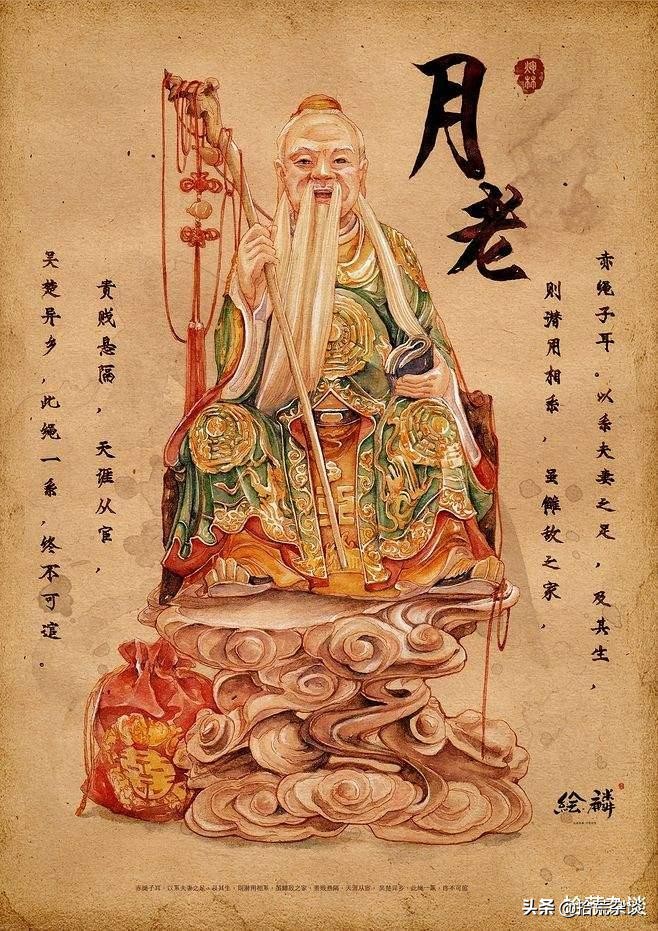 月老
赤绳子耳。以系夫妻之足，及其生，
则潜用相系，虽雠敌之家，
贵贱悬隔，天涯从宦，
吴楚异乡，此绳一系，终不可逭。
絵麟
赤绳子耳，以系夫妻之足，及其生，则潜用相系，虽雠敌之家，贵贱悬隔，天涯从宦，吴楚异乡，此绳一系，终不可逭
头条 @拾荒杂谈